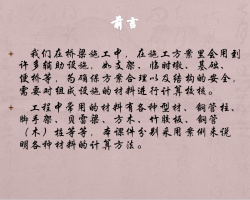 前言
我们在桥梁施工中，在施工方案里会用到
许多辅助设施，如支架、临时墩、基础、
便桥等，为确保方案合理以及结构的安全，
需要对组成设施的材料进行计算检核。
工程中常用的材料有各种型材、钢管柱、
脚手架、贝雷梁、方木、竹胶板、钢管
（木）桩等等，本课件分别采用案例来说
明各种材料的计算方法。